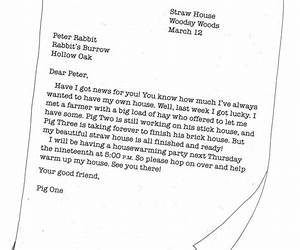 Straw House
Woodsy Woods
March 12
Peter Rabbit
Rabbit's Burrow
Hollow Oak
Dear Peter,
Have I got news for you! You know how much I've always
wanted to have my own house. Well, last week I got lucky. I
met a farmer with a big load of hay who offered to let me
have some. Pig Two is still working on his stick house, and
Pig Three is taking forever to finish his brick house. But
my beautiful straw house is all finished and ready!
I will be having a housewarming party next Thursday
the nineteenth at 5:00 P.M. So please hop on over and help
warm up my house. See you there!
Your good friend,
Pig One